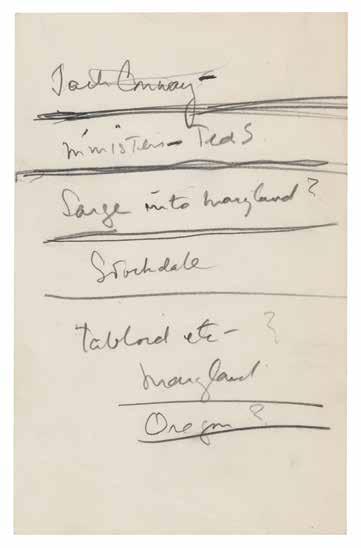 Jack Conway -
ministers - Ted S
Sarge into Maryland?
Stockdale
tabloid etc - ?
Maryland
Oregon?